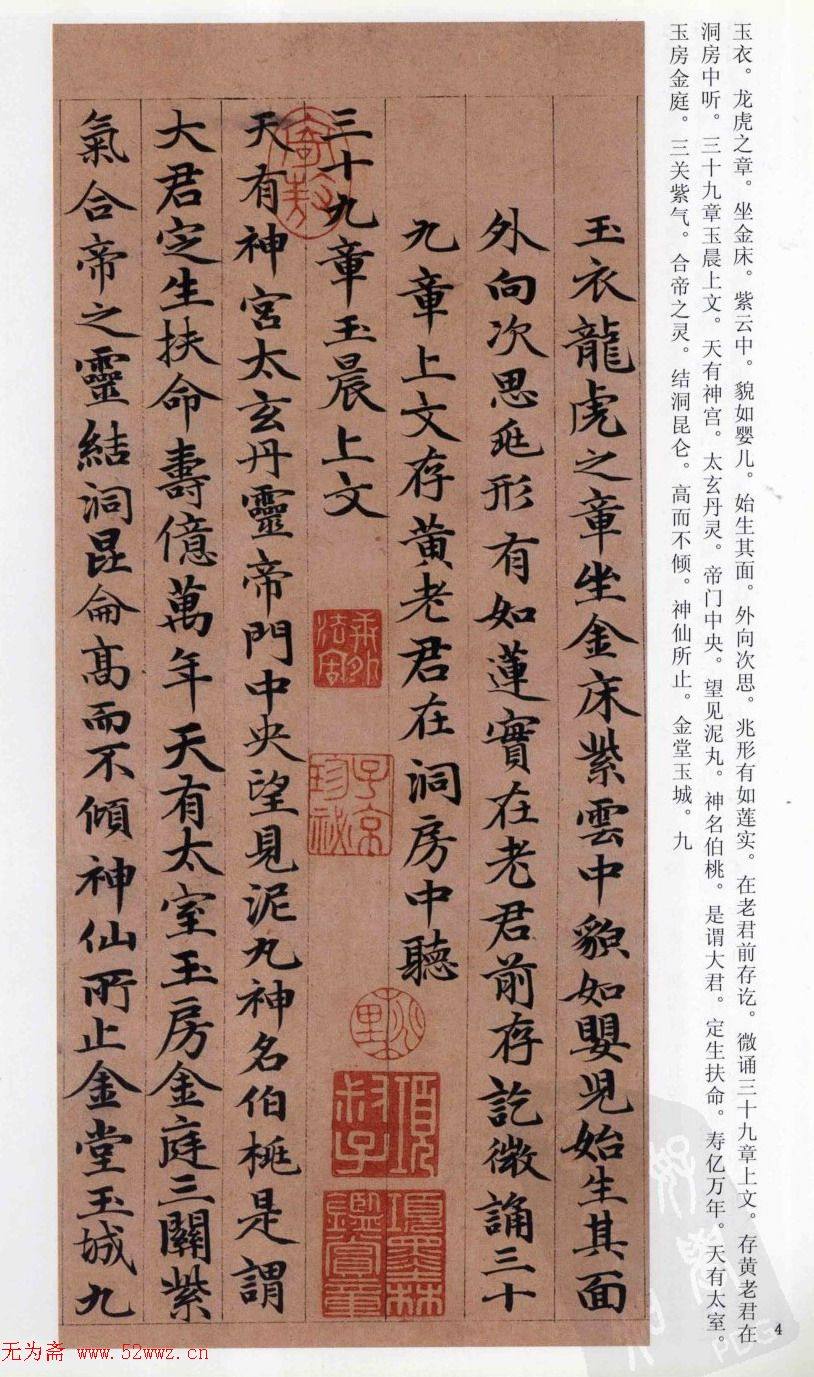 玉衣。龙虎之章。坐金床。紫云中。貌如婴儿。始生其面。外向次思。兆形有如莲实。在老君前存讫。微诵三十九章上文。存黄老君在
洞房中听。三十九章玉晨上文。天有神宫。太玄丹灵。帝门中央。望见泥丸。神名伯桃。是谓大君。定生扶命。寿亿万年。天有太室。
玉房金庭。三关紫气。合帝之灵。结洞昆仑。高而不倾。神仙所止。金堂玉城。九
玉衣龍虎之章坐金床紫雲中貌如嬰兒始生其面
外向次思兆形有如蓮實在老君前存訖微誦三十
九章上文存黄老君在洞房中聽
三十九章玉晨上文
天有神宮太玄丹靈帝門中央望見泥丸神名伯桃是謂
大君定生扶命壽億萬年天有太室玉房金庭三關紫
氣合帝之靈結洞昆侖高而不傾神仙所止金堂玉城九
子京珍祕
項叔子
項墨林鑑賞章
4
无为斋 www.52wwz.cn